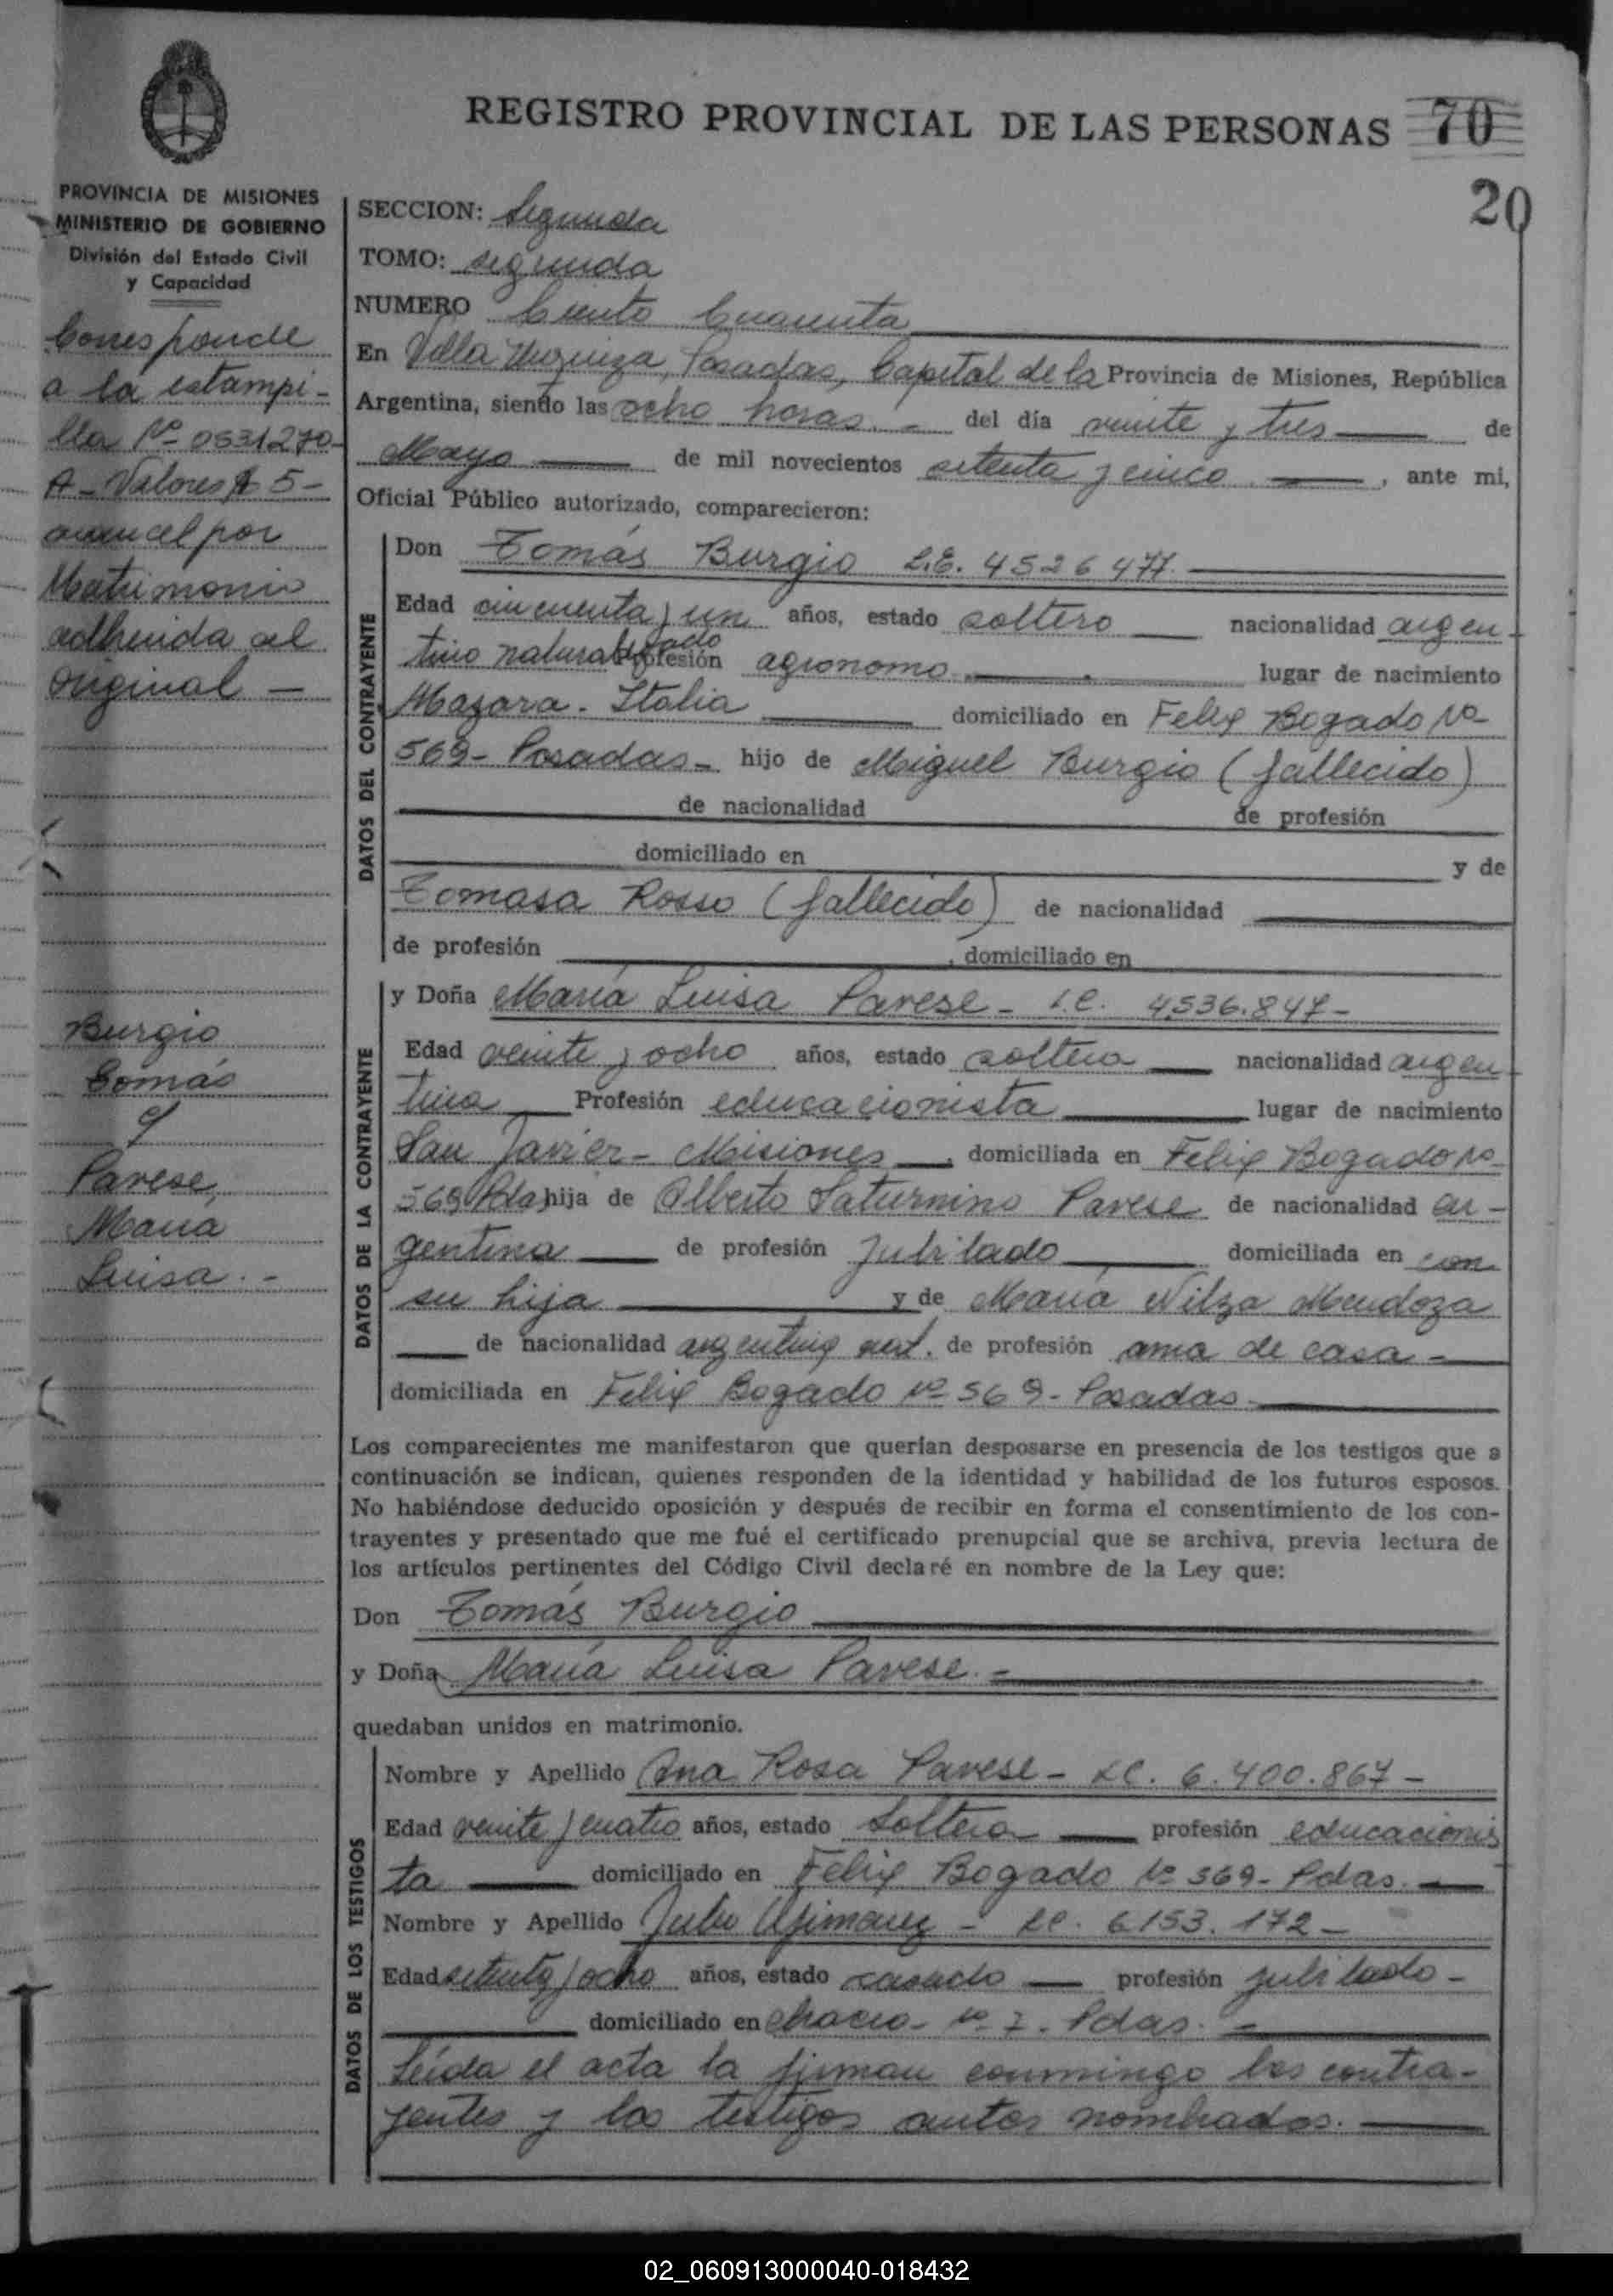 REGISTRO PROVINCIAL DE LAS PERSONAS 70
20
PROVINCIA DE MISIONES
MINISTERIO DE GOBIERNO
División del Estado Civil
y Capacidad
Corresponde
a la estampi-
lla Nº 0531270-
A - Valores $ 5-
arancel por
Matrimonio
adherida al
original -
Burgio
Tomás
y
Pavese,
María
Luisa.-
SECCION: Segunda
TOMO: segunda
NUMERO Ciento Cuarenta
En Villa Urquiza, Posadas, Capital de la Provincia de Misiones, República
Argentina, siendo las ocho horas. - del día veinte y tres de
Mayo de mil novecientos setenta y cinco , ante mi,
Oficial Público autorizado, comparecieron:
DATOS DEL CONTRAYENTE
Don Tomás Burgio L.E. 4526477.
Edad cincuenta y un años, estado soltero nacionalidad argen-
tino naturalizado Profesión agronomo lugar de nacimiento
Mazara - Italia domiciliado en Felix Bogado Nº
569- Posadas- hijo de Miguel Burgio (fallecido)
de nacionalidad de profesión
domiciliado en y de
Tomasa Rosso (fallecido) de nacionalidad
de profesión , domiciliado en
DATOS DE LA CONTRAYENTE
y Doña María Luisa Pavese - L.C. 4,536.847-
Edad veinte y ocho años, estado soltera nacionalidad argen-
tina Profesión educacionista lugar de nacimiento
San Javier - Misiones , domiciliada en Felix Bogado Nº
569 Pdas hija de Alberto Saturnino Pavese de nacionalidad ar-
gentina de profesión Jubilado domiciliada en con
su hija y de María Nilza Mendoza
de nacionalidad argentina nat. de profesión ama de casa -
domiciliada en Felix Bogado Nº 569 - Posadas
Los comparecientes me manifestaron que querían desposarse en presencia de los testigos que a
continuación se indican, quienes responden de la identidad y habilidad de los futuros esposos.
No habiéndose deducido oposición y después de recibir en forma el consentimiento de los con-
trayentes y presentado que me fué el certificado prenupcial que se archiva, previa lectura de
los artículos pertinentes del Código Civil declaré en nombre de la Ley que:
Don Tomás Burgio
y Doña María Luisa Pavese.-
quedaban unidos en matrimonio.
DATOS DE LOS TESTIGOS
Nombre y Apellido Ana Rosa Pavese - LC. 6.400.867-
Edad veinte y cuatro años, estado soltera profesión educacionis
ta domiciliado en Felix Bogado Nº 569- Pdas.
Nombre y Apellido Julio - LE. 6153.172-
Edad setenta y ocho años, estado casado profesión jubilado -
domiciliado en Chacra - Nº 7. Pdas. -
Leída el acta la firman conmingo los contra-
yentes y los testigos antes nombrados.
02_060913000040-018432